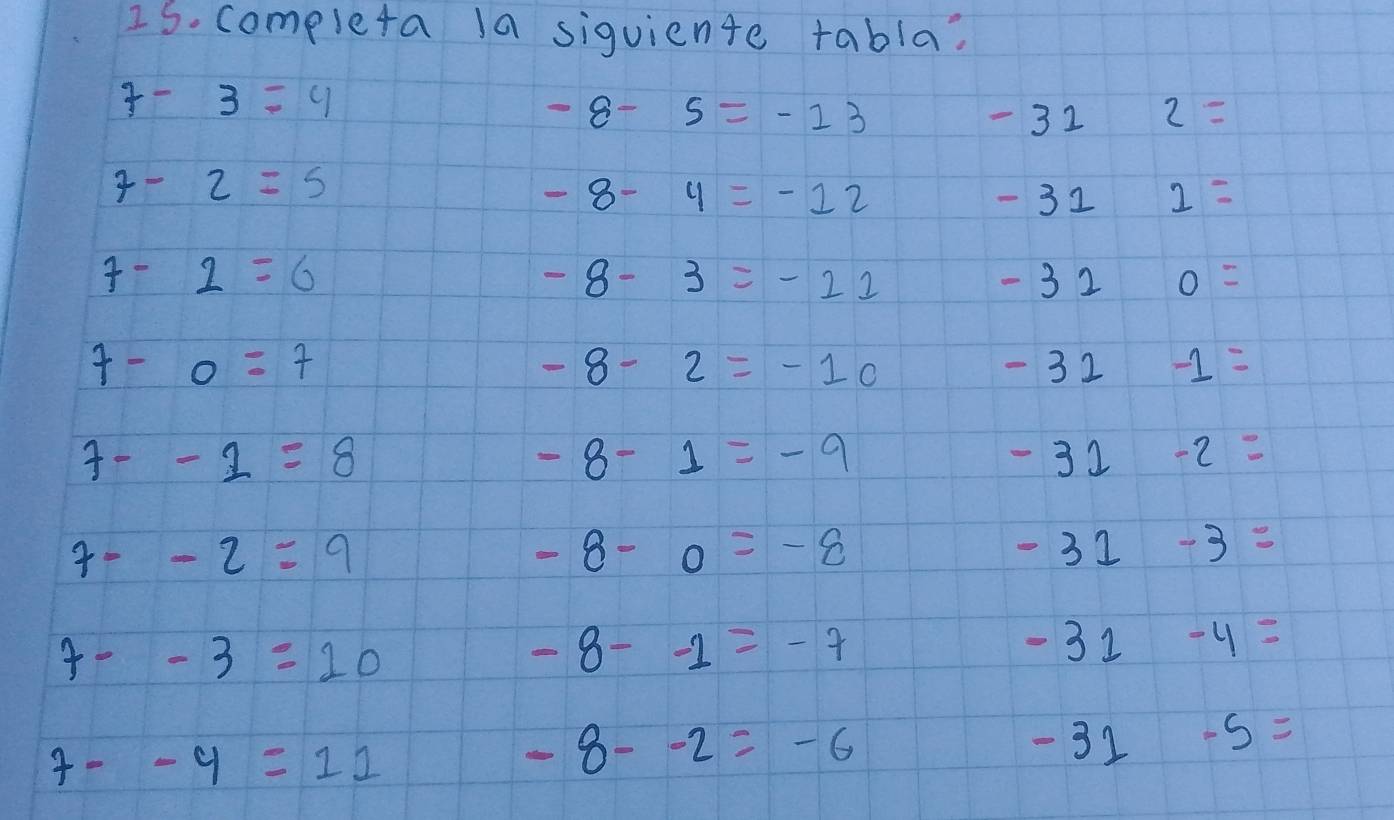 15. Completa la siguiente tabla:
7 - 3 = 4 -8 - 5 = -13 -31 2 =
7 - 2 = 5 -8 - 4 = -12 -31 1 =
7 - 1 = 6 -8 - 3 = -11 -31 0 =
7 - 0 = 7 -8 - 2 = -10 -31 -1 =
7 - -1 = 8 -8 - 1 = -9 -31 -2 =
7 - -2 = 9 -8 - 0 = -8 -31 -3 =
7 - -3 = 10 -8 - -1 = -7 -31 -4 =
7 - -4 = 11 -8 - -2 = -6 -31 -5 =